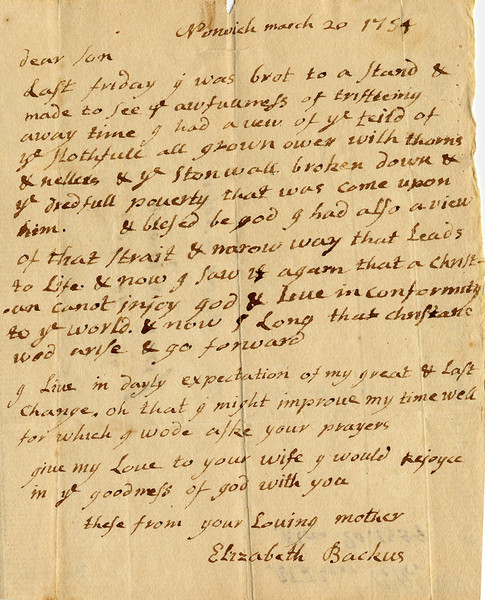 Norwich march 20 1754
dear son
Last friday I was brot to a stand &
made to see ye awfulness of trifleing
away time I had a view of ye feild of
ye slothfull all grown over with thorns
& netters & ye stonwall broken down &
ye dredfull poverty that was come upon
him. & blesed be god I had also a view
of that strait & narow way that Leads
to Life. & now I saw it again that a christ-
an canot injoy god & Live in conformity
to ye world. & now I Long that christans
wod arise & go forward
I Live in dayly expectation of my great & Last
change. oh that I might improve my time well
for which I wode aske your prayers
give my Love to your wife I would Rejoyce
in ye goodness of god with you
these from your Loving mother
Elizabeth Backus